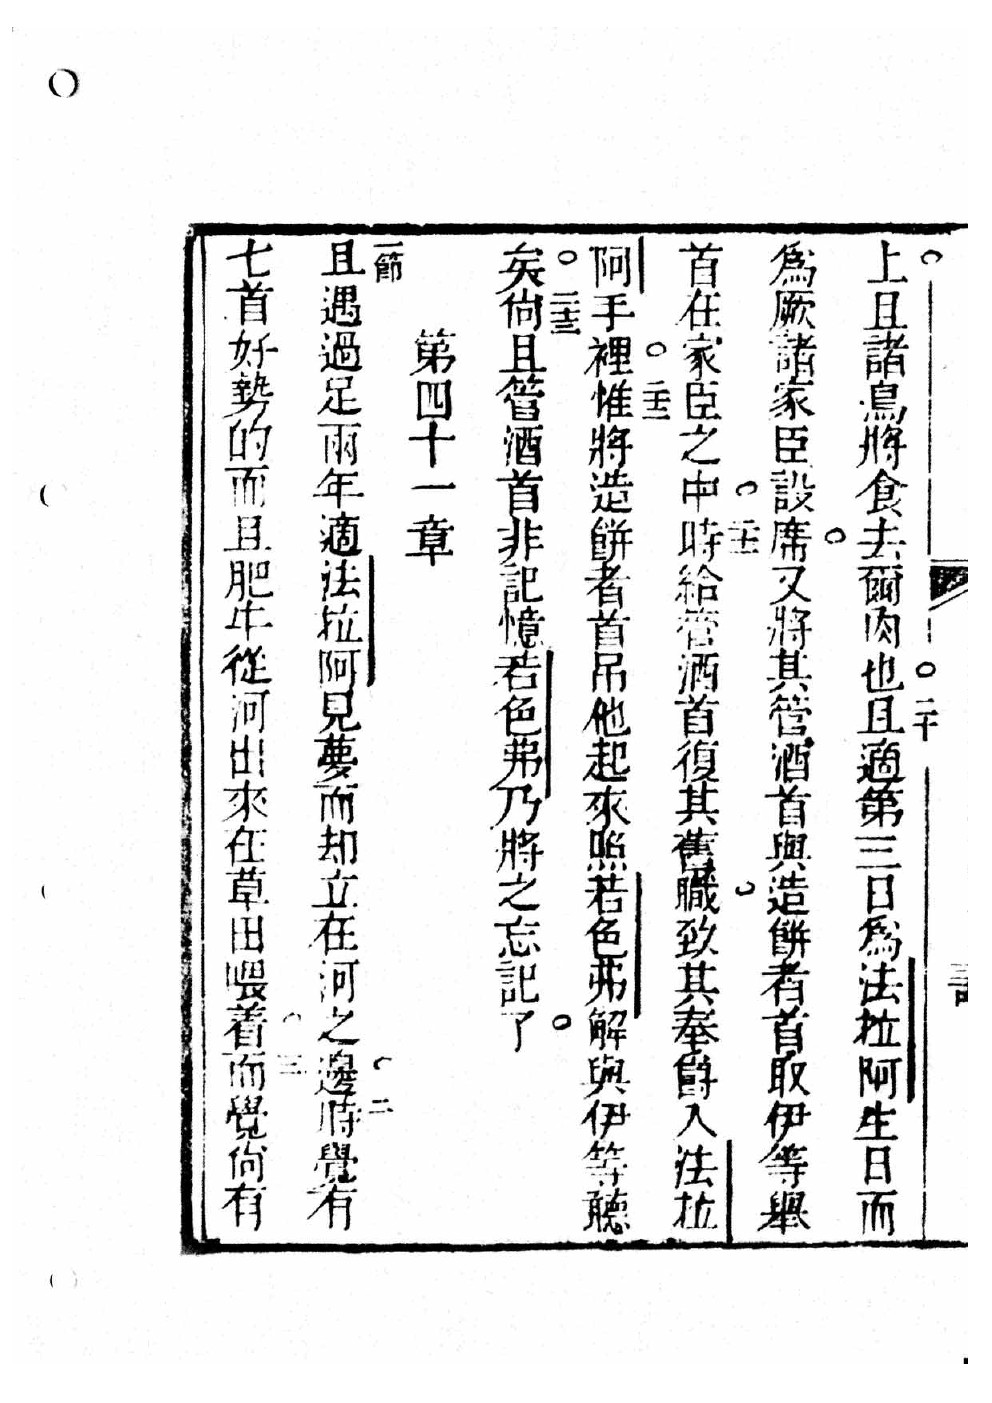 上且諸鳥將食去爾肉也且適第三日爲法拉阿生日而
二十
爲厥諸家臣設席又將其管酒首與造餅者首取伊等舉
二十一
首在家臣之中時給管酒首復其舊職致其奉爵入法拉
二十二
阿手裡惟將造餅者首吊他起來照若色弗解與伊等聽
二十三
矣尙且管酒首非記憶若色弗乃將之忘記了
第四十一章
一節
且遇過足兩年適法拉阿見夢而却立在河之邊時覺有
二
七首好勢的而且肥牛從河出來在草田喂着而覺尙有
三